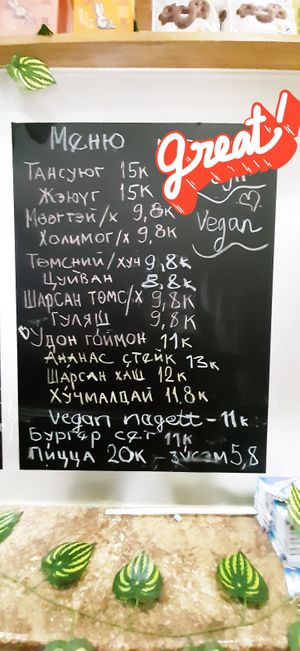 great!
Меню
Vegan
Тансуюг 15к
Жэюүг 15к
Мөөгтэй/х 9,8к
Холимог/х 9,8к
Төмсний/хуч 9,8к
Цуйван 8,8к
Шарсан төмс/х 9,8к
Гуляш 9,8к
Удон гоймон 11к
Ананас стейк 13к
Шарсан хаш 12к
Хучмалдай 11.8к
Vegan nagett - 11к
Бургер сет 11к
Пицца 20к - зүсэм 5,8